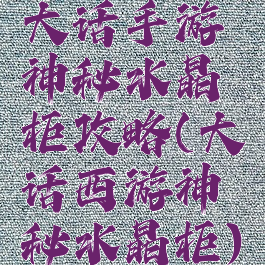 大话手游
神秘水晶
柜攻略(大
话西游神
秘水晶柜)